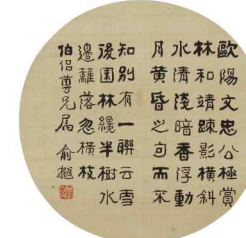 歐陽文忠公極賞
林和靖疎影橫斜
水清淺暗香浮動
月黃昏之句而不
知別有一聯云雪
後園林纔半樹水
邊籬落忽橫枝
伯侶尊兄屬 俞樾